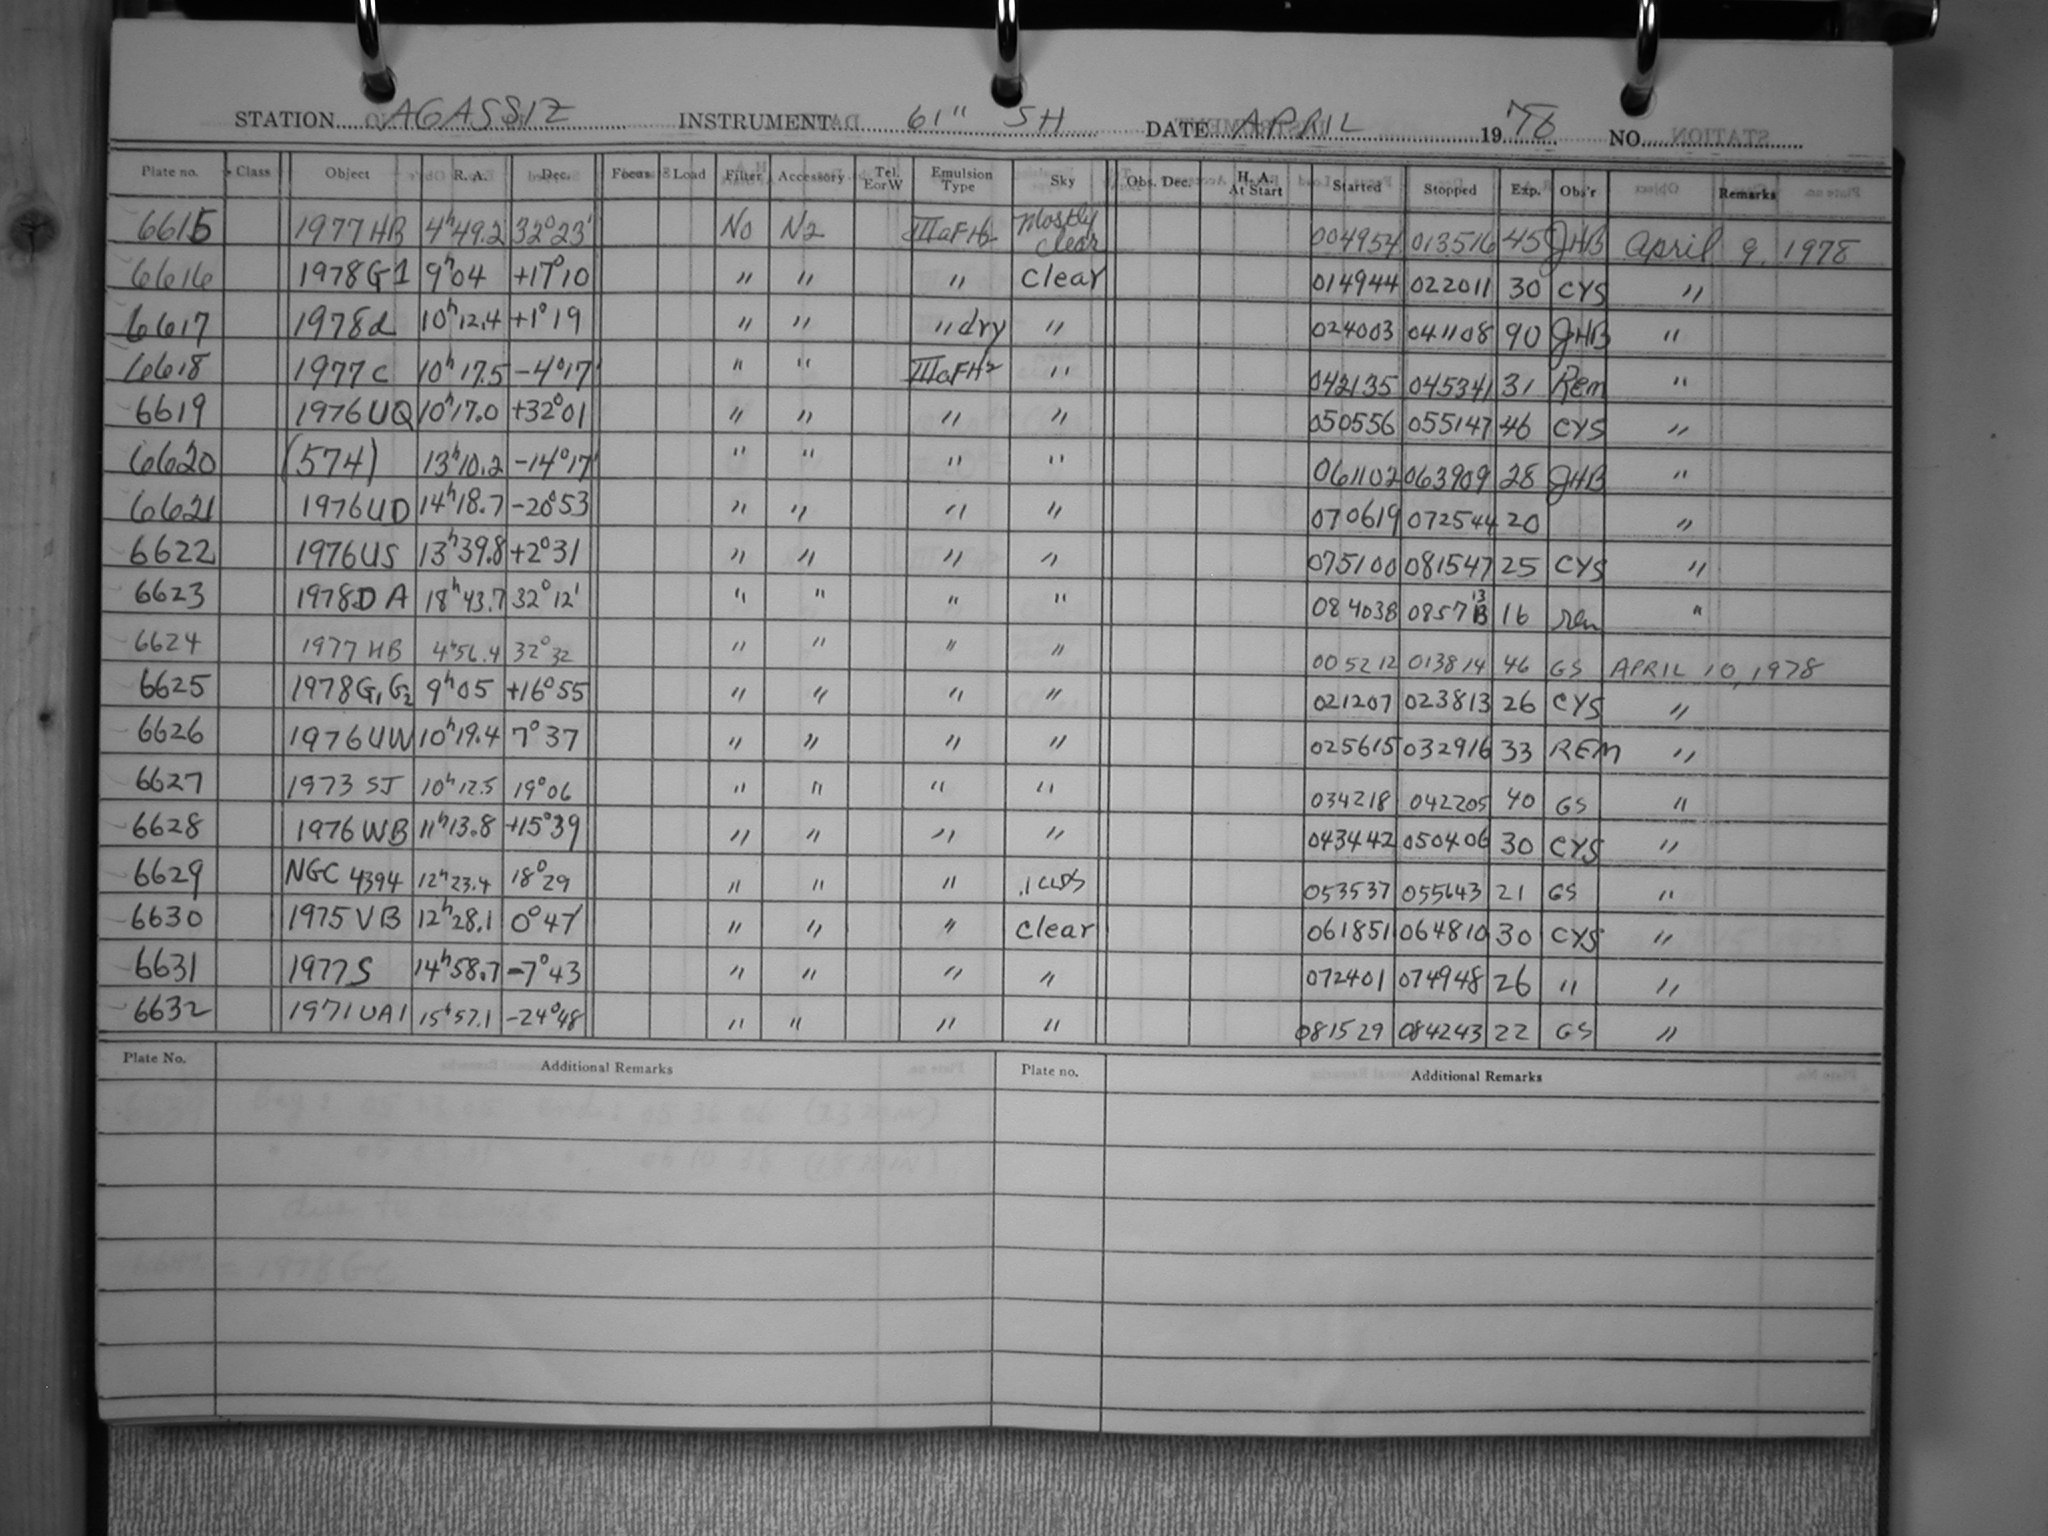 STATION AGASSIZ INSTRUMENT 61" SH DATE APRIL 1978 NO.
Plate no. Class Object R. A. Dec. Focus Load Filter Accessory Tel. E or W Emulsion Type Sky Obs. Dec. H. A. At Start Started Stopped Exp. Obs'r Remarks
6615 1977 HB 4h49.2 32°23' No N2 IIIaFH2 Mostly clear 004954 013516 45 JHB April 9, 1978
6616 1978G1 9h04 +17°10 " " " Clear 014944 022011 30 CYS "
6617 1978d 10h12.4 +1°19 " " " dry " 024003 041108 90 JHB "
6618 1977c 10h17.5 -4°17' " " IIIaFH2 " 042135 045341 31 Rem "
6619 1976UQ 10h17.0 +32°01 " " " " 050556 055147 46 CYS "
6620 (574) 13h10.2 -14°17' " " " " 061102 063909 28 JHB "
6621 1976UD 14h18.7 -20°53 " " " " 070619 072544 20 "
6622 1976US 13h39.8 +2°31 " " " " 075100 081547 25 CYS "
6623 1978DA 18h43.7 32°12' " " " " 084038 085713 16 rem "
6624 1977 HB 4h56.4 32°32 " " " " 005212 013814 46 GS APRIL 10, 1978
6625 1978G1G2 9h05 +16°55 " " " " 021207 023813 26 CYS "
6626 1976UW 10h19.4 7°37 " " " " 025615 032916 33 REM "
6627 1973 SJ 10h12.5 19°06 " " " " 034218 042205 40 GS "
6628 1976 WB 11h13.8 +15°39 " " " " 043442 050406 30 CYS "
6629 NGC 4394 12h23.4 18°29 " " " 053537 055643 21 GS "
6630 1975 VB 12h28.1 0°47' " " " clear 061851 064810 30 CYS "
6631 1977S 14h58.7 -7°43 " " " " 072401 074948 26 " "
6632 1971UA1 15h57.1 -24°48 " " " " 081529 084243 22 GS "
Plate No. Additional Remarks Plate no. Additional Remarks